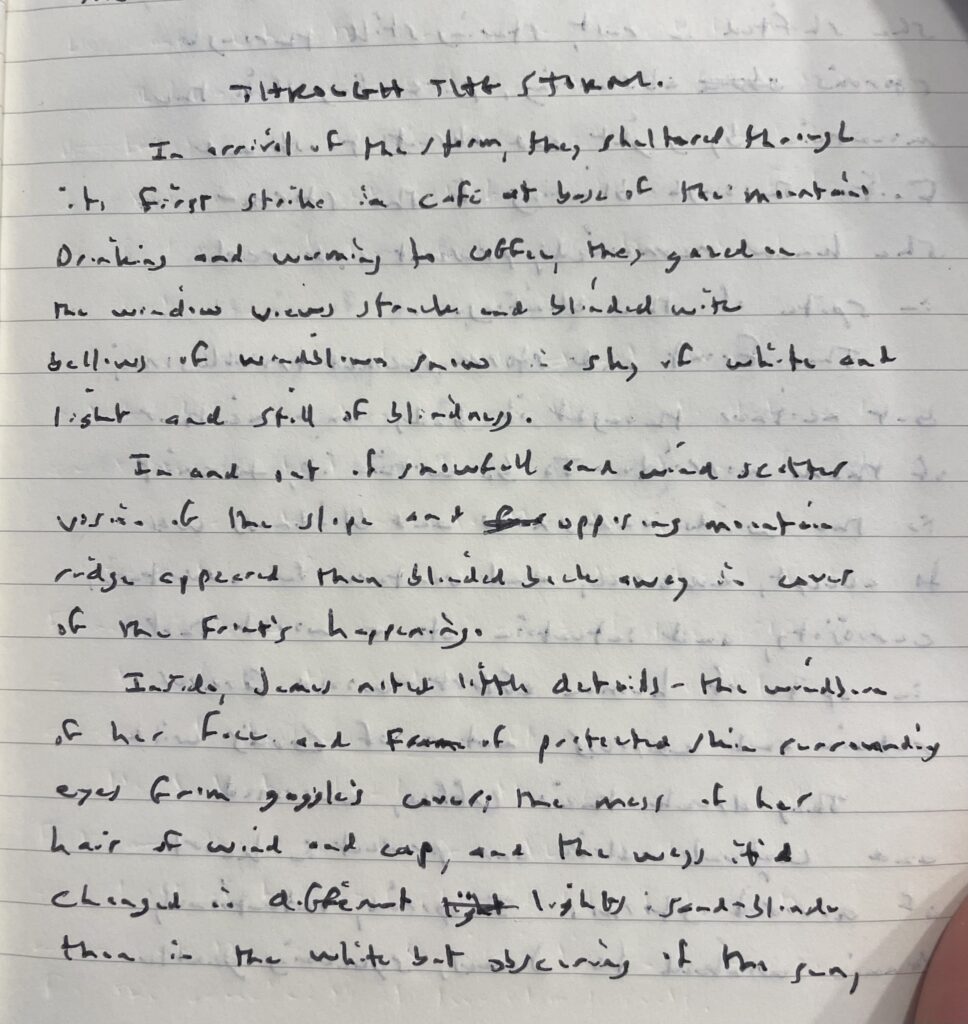 THROUGH THE STORM.
In arrival of the storm, they sheltered through
its first strike in café at base of the mountain.
Drinking and warming to coffee, they gazed on
the window views struck and blinded with
bellows of windblown snow in sky of white and
light and still of blindness.
In and out of snowfall and wind scatter
vision of the slope and opposing mountain
ridge appeared then blinded back away in cover
of the front's happening.
Inside, James noted little details - the windburn
of her face and frame of protected skin surrounding
eyes from goggle's cover; the mess of her
hair of wind and cap, and the ways it'd
changed in different lights: sand-blonde
then in the white but obscuring of the sun,